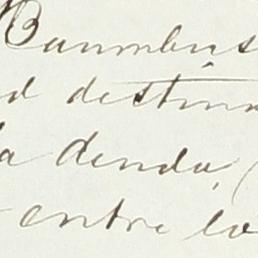 Baumbus
d destina
la denda, (
entre lo